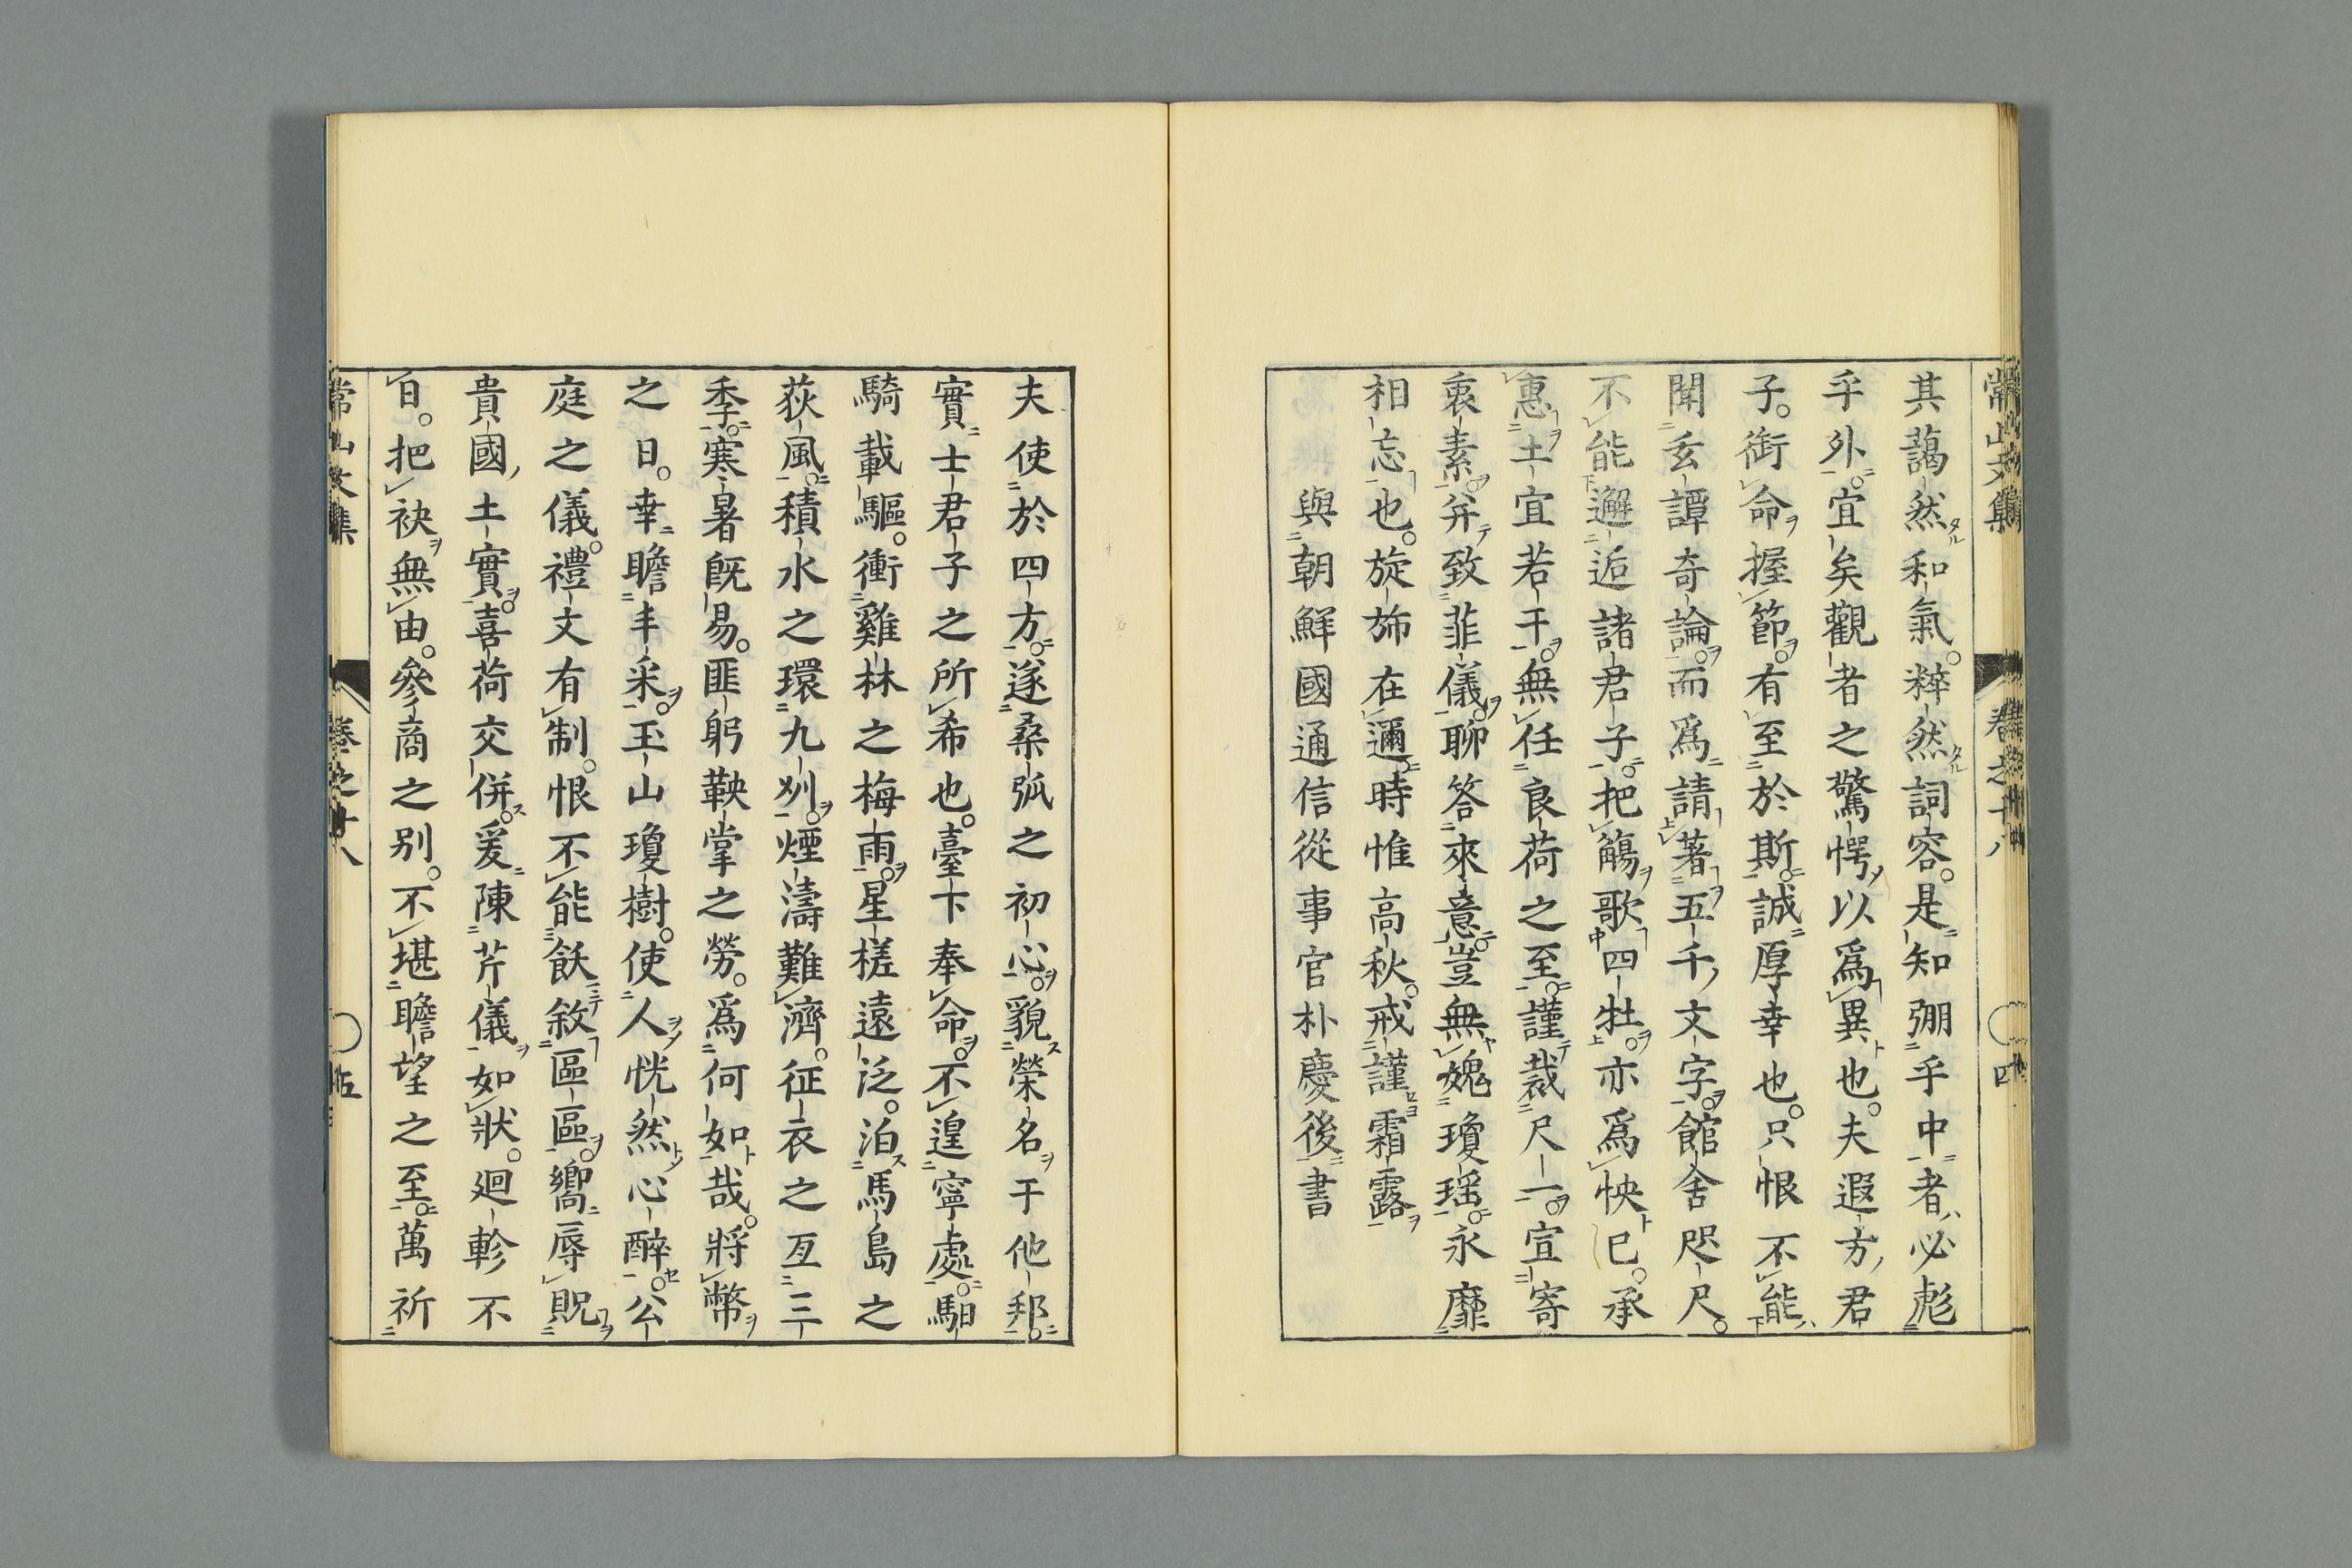 其藹然和氣。粹然詞容。是知弸乎中者、必彪
乎外。宜矣觀者之驚愕以爲異也。夫遐方君
子。銜命握節。有至於斯。誠厚幸也。只恨不能
聞玄譚奇論。而爲請著五千文字。館舍咫尺。
不能邂逅諸君子。把觴歌四牡。亦爲怏已。承
惠土宜若干。無任良荷之至。謹裁尺一。宣寄
衷素。并致菲儀。聊答來意。豈無媿瓊瑶。永靡
相忘也。旋斾在邇。時惟高秋。戒謹霜露
與朝鮮國通信從事官朴慶後書
夫使於四方。遂桑弧之初心。貌榮名于他邦。
實士君子之所希也。臺卞奉命。不遑寧處。馹
騎載驅。衝雞林之梅雨。星槎遠泛。泊馬島之
荻風。積水之環九州。煙濤難濟。征衣之亙三
季。寒暑既易。匪躬鞅掌之勞。爲何如哉。將幣
之日。幸瞻丰采。玉山瓊樹。使人恍然心醉。公
庭之儀。禮文有制。恨不能飫敘區區。嚮辱貺
貴國土實。喜荷交併。爰陳芹儀如狀。廻軫不
日。把袂無由。參商之别。不堪瞻望之至。萬祈
常山文集 卷之十八 四
常山文集 卷之十八 五